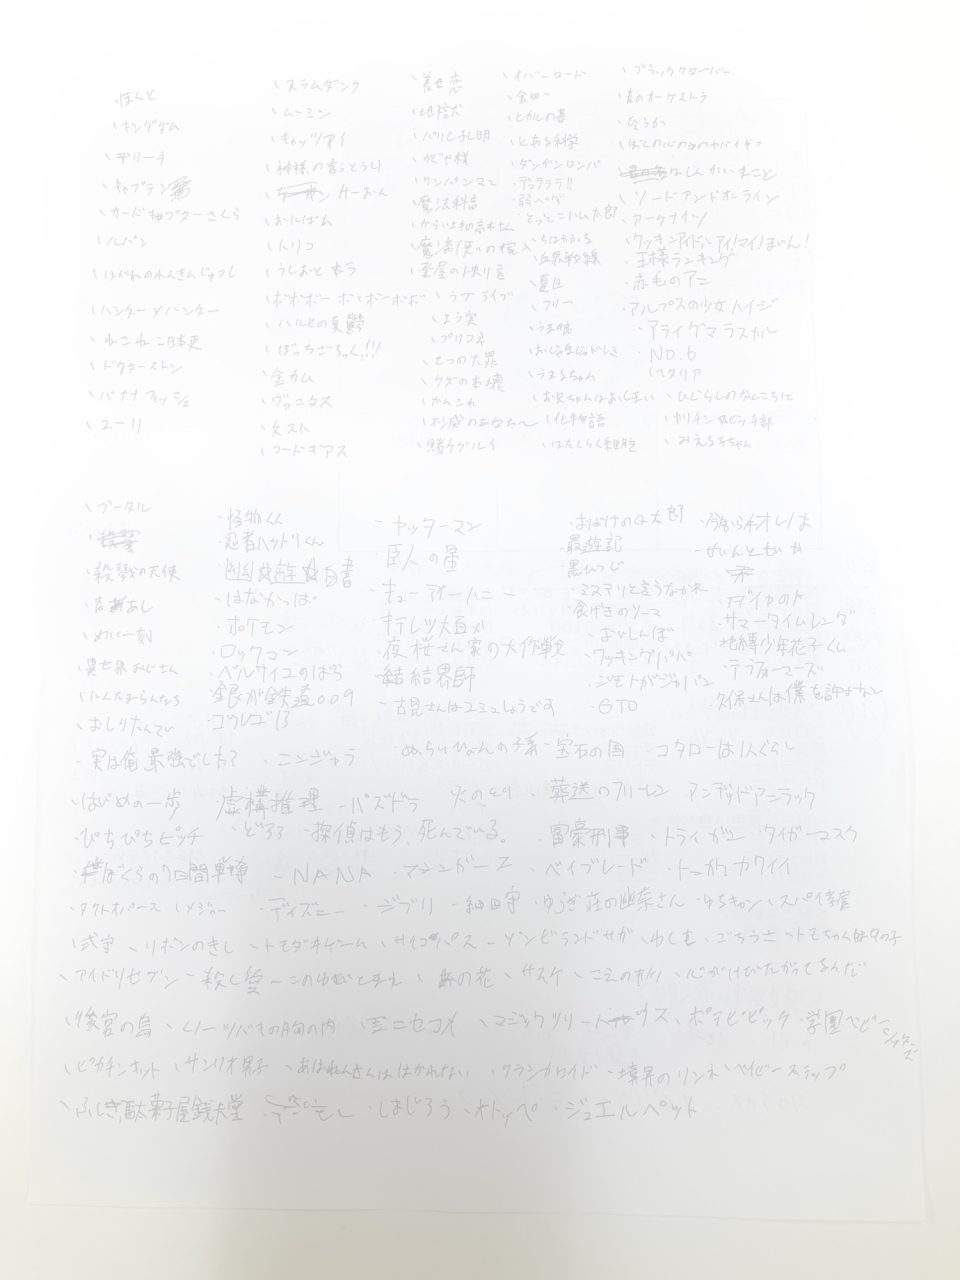 ほんと
キングダム
デリーチ
キャプテン翼
カードキャプターさくら
ルパン
はがれのれんきんじゅつし
ハンター×ハンター
ねこねこ日本史
ドクターストン
バナナフィッシュ
ユーリ
スラムダンク
ムーミン
キャッツアイ
神様の言うとうり
けーおん
おんばム
トリコ
うしおとトラ
ボボボーボ ボーボボ
ハルヒの憂鬱
ぼっちざろっく!!!
金カム
ヴァニタス
文スト
コードギアス
着せ恋
地獄
パリピ孔明
かぐや様
ワンパンマン
魔法科高
からかい上手の高木さん
魔法使いの嫁
薬屋の
ラブライブ
よう実
プリコネ
七つの大罪
クズの本懐
かんこれ
不滅のあなたへ
賭ケグルイ
オバーロード
金田一
ヒカルの碁
とある科学
ダンガンロンパ
デュラララ!!
弱ペダ
とっとこハム太郎
ちはやふる
血界戦線
夏目
フリー
うま娘
おじゃる丸
うまるちゃん
お兄ちゃんはおしまい
化物語
はたらく細胞
ブラッククローバー
青のオーケストラ
なろうか
ぼくの心の中のヤバイヤツ
ソードアンドオンライン
アークナイツ
クッキンアイドル アイ!マイ!まいん!
王様ランキング
赤毛のアン
アルプスの少女ハイジ
アライグマラスカル
NO.6
ヘタリア
ひぐらしのなくころに
ヤリチン☆ビッチ部
みえる子ちゃん
ブータル
殺戮の天使
斉藤あし
めぞん一刻
異世界おじさん
にんたまらんたろう
おしりたんてい
怪物くん
忍者ハットリくん
幽☆遊☆白書
はなかっぱ
ポケモン
ロックマン
ベルサイユのばら
銀が鉄道009
ゴルゴ13
ヤッターマン
巨人の星
キューティーハニー
キテレツ大百メ
夜桜さん家の大作戦
結結界師
古見さんはコミュしょうです
おばけのQ太郎
最遊記
黒しつじ
ミステリと言うなかれ
食げきのソーマ
おいしんぼ
クッキングパパ
ジモトがジャパン
GTO
今からオレは
せいんとせいや
ダイヤのA
サマータイムレンダ
地縛少年花子くん
テラフォーマーズ
久保さんは僕を許さない
実は俺、最強でした? ニンジャラ ぬらりひょんの孫 宝石の国 コタローは1人ぐらし
はじめの一歩 虚構推理 パズドラ 火の鳥 葬送のフリーレン アンデッドアンラック
ぴちぴちピッチ どろろ 探偵はもう、死んでいる。 富豪刑事 トライガン タイガーマスク
僕ぼくらの7日間戦争 NANA マジンガーZ ベイブレード トニカクカワイイ
タクトオパース メジャー ディズニー ジブリ 細田守 ゆらぎ荘の幽奈さん ゆるキャン スパイ学室
弐宇 リボンのきし トモダチゲーム サイコパス ゾンビランドサガ ごちうさ トモちゃんは女の子
アイドリセブン 殺し愛 このゆびとまれ あの花 サスケ こえのカタチ 心がさけびたがってるんだ
後宮の烏 ルーツバキの胸の内 ミニセコイ マジックツリーハウス ポプテピピック 学園ベビーシッターズ
ピカチンキット サンリオ男子 あはれんさんははかれない クラシカロイド 境界のリンネ ベイビーステップ
ふしぎ駄菓子屋銭天堂 しまじろう オトッペ ジュエルペット